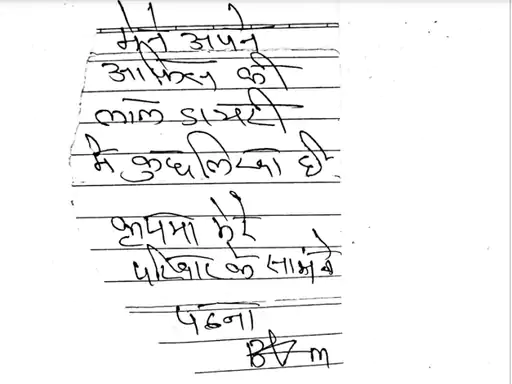 मेने अपने
आफिस की
लाल डायरी
मे कुछ लिखा है
कृपया मेरे
परिवार के सामने
पढना